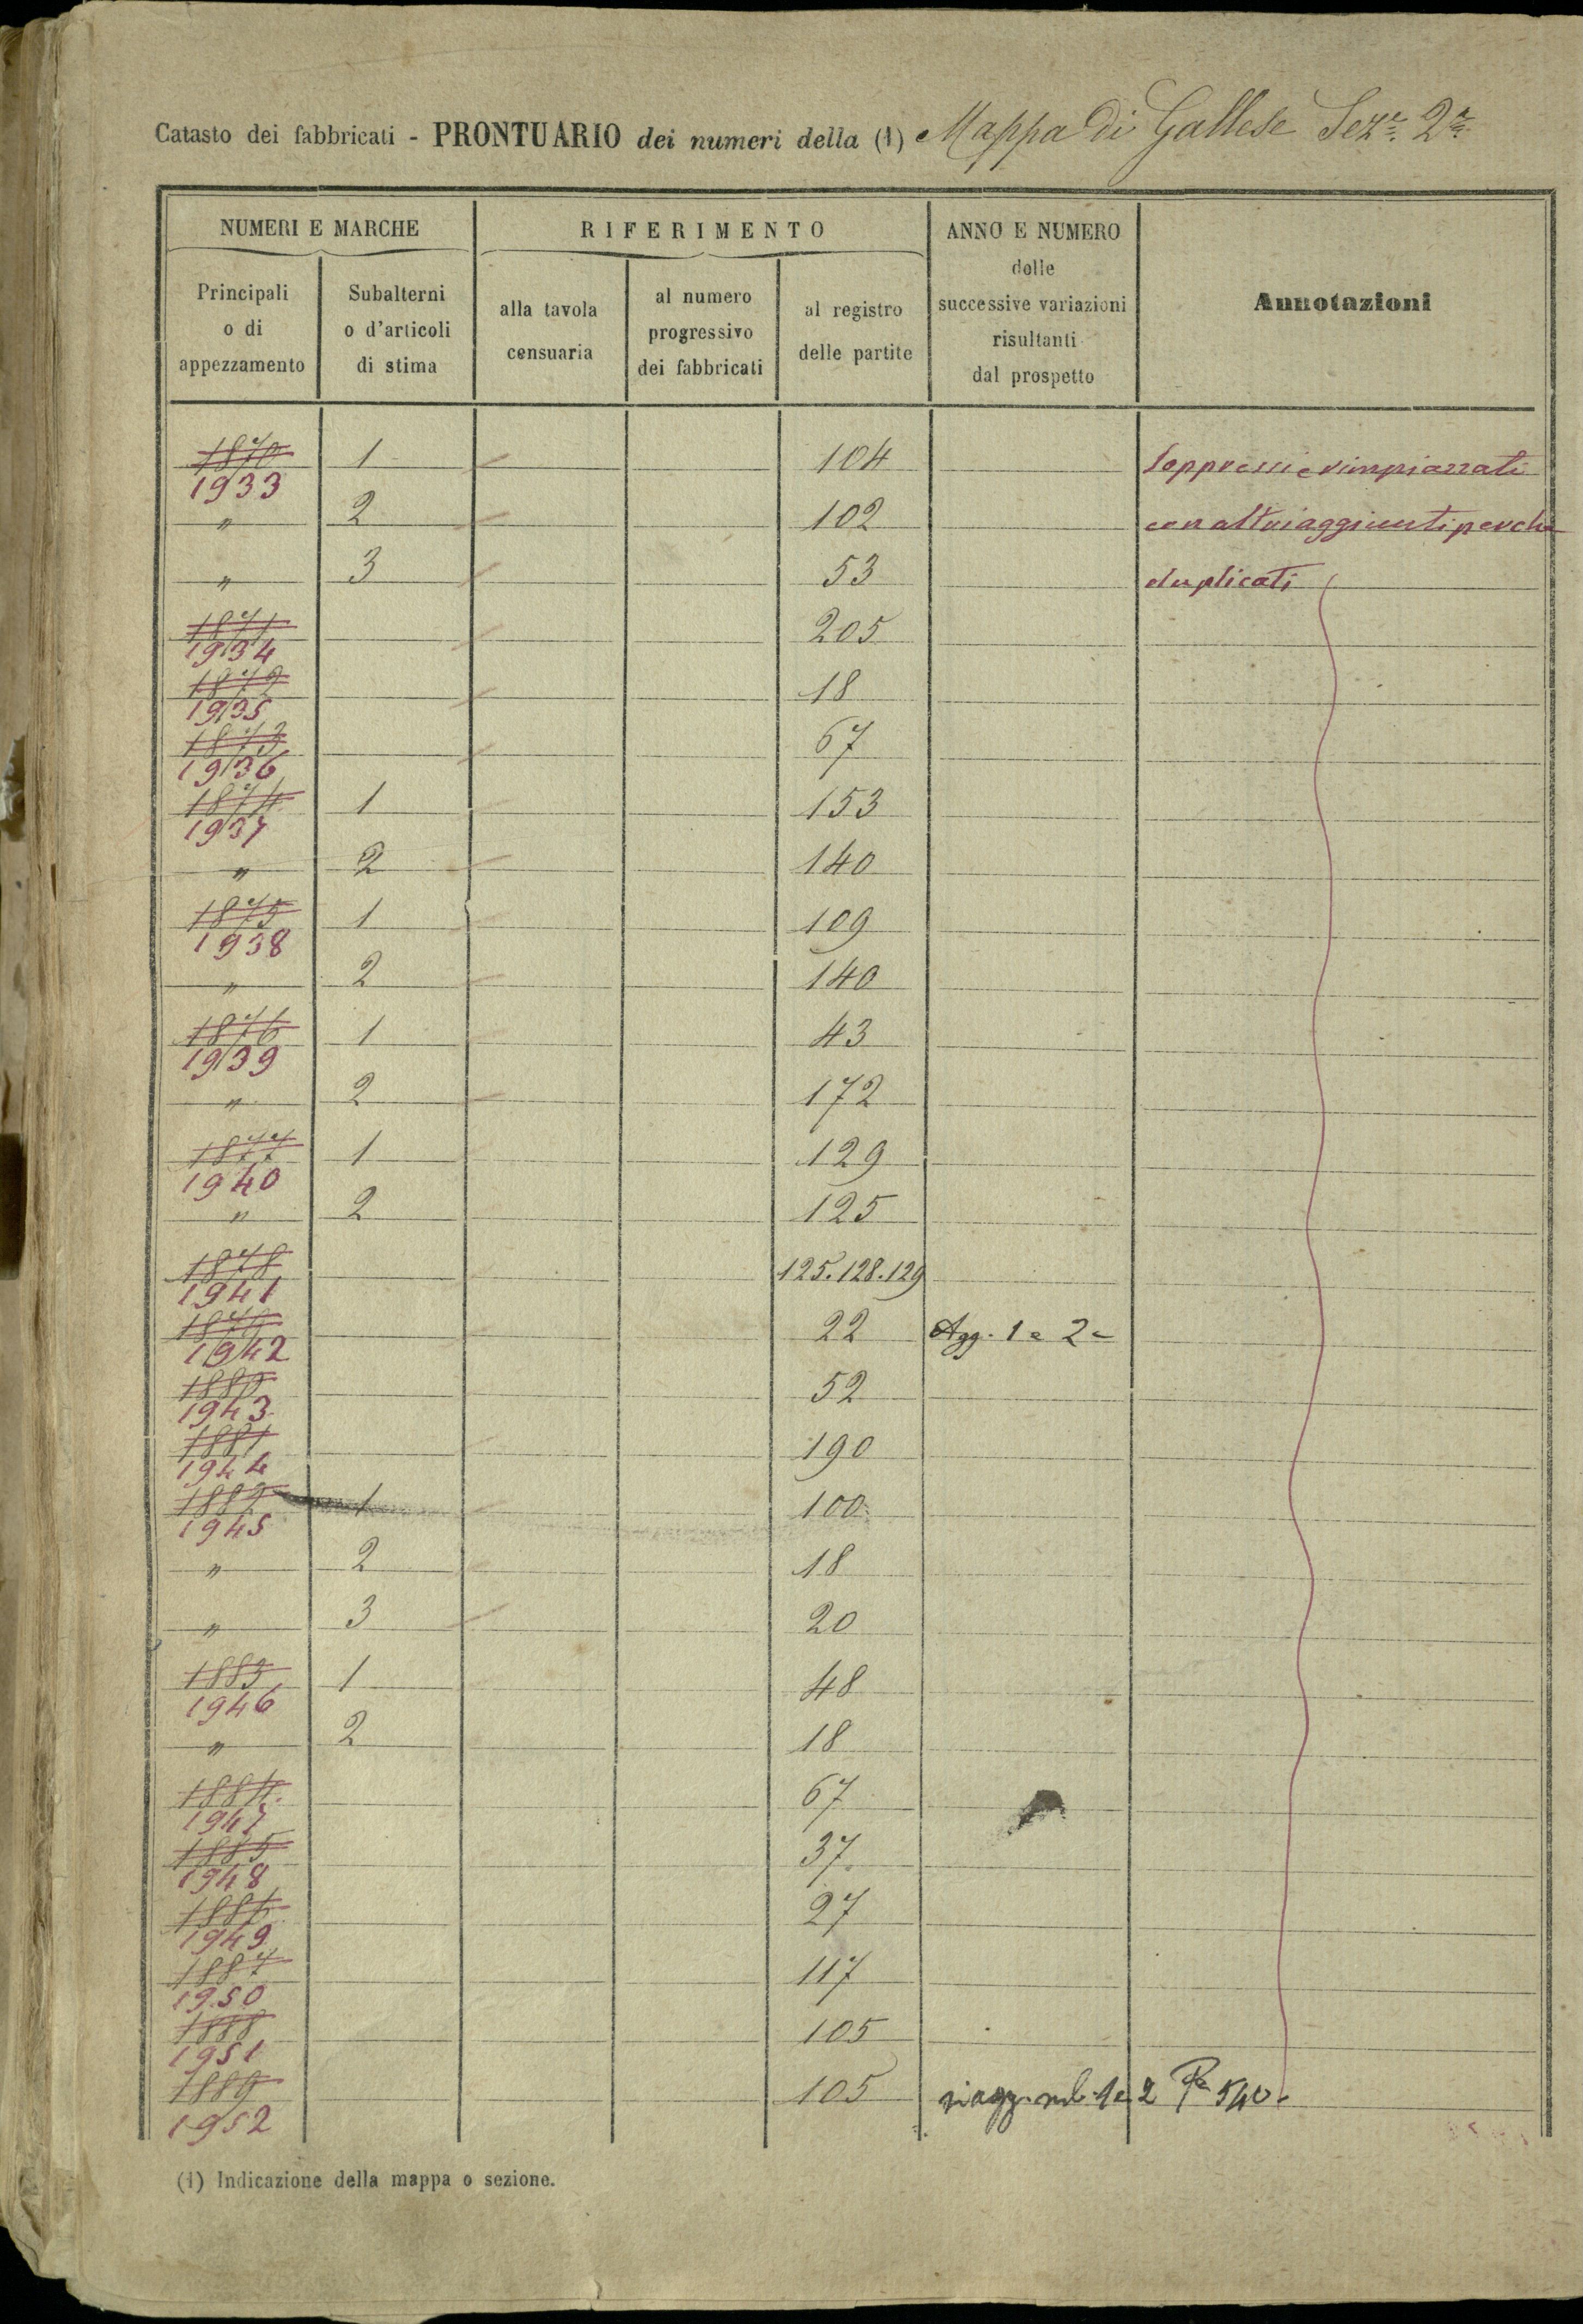 Catasto dei fabbricati - PRONTUARIO dei numeri della (1) Mappa di Gallese Sez.ne 2a
NUMERI E MARCHE
RIFERIMENTO
ANNO E NUMERO
delle
successive variazioni
risultanti
dal prospetto
Annotazioni
Principali
o di
appezzamento
Subalterni
o d'articoli
di stima
alla tavola
censuaria
al numero
progressivo
dei fabbricati
al registro
delle partite
1870 1 104 Soppressi e rimpiazzati
1933
" 2 102 con altri aggiunti perchè
" 3 53 duplicati
1871 205
1934
1872 18
1935
1873 67
1936
1874 1 153
1937
" 2 140
1875 1 109
1938
" 2 140
1876 1 43
1939
" 2 172
1877 1 129
1940
" 2 125
1878 125.128.129
1941
1879 22 Agg. 1 e 2
1942
1880 52
1943
1881 190
1944
1882 1 100
1945
" 2 18
" 3 20
1883 1 48
1946
" 2 18
1884 67
1947
1885 37
1948
1886 27
1949
1887 117
1950
1888 105
1951
1889 105 1 e 2 540
1952
(1) Indicazione della mappa o sezione.